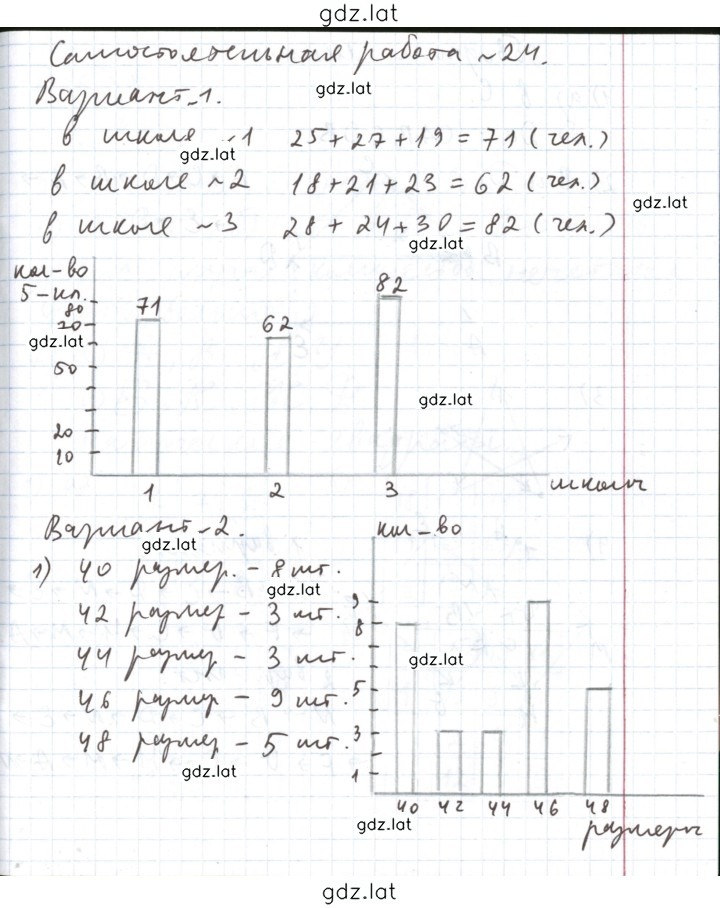 gdz.lat
Самостоятельная работа ~24.
Вариант-1.
gdz.lat
в школе ~1 25+27+19=71 (чел.)
gdz.lat
в школе ~2 18+21+23=62 (чел.)
gdz.lat
в школе ~3 28+24+30=82 (чел.)
gdz.lat
кол-во
5-кл.
80
20
50
20
10
71
62
82
gdz.lat
gdz.lat
1 2 3 школы
Вариант-2.
gdz.lat
1) 40 размер. - 8 шт.
gdz.lat
42 размер - 3 шт.
44 размер - 3 шт.
46 размер - 9 шт.
48 размер - 5 шт.
gdz.lat
кол-во
9
8
5
3
1
gdz.lat
40 42 44 46 48
размеры
gdz.lat
gdz.lat